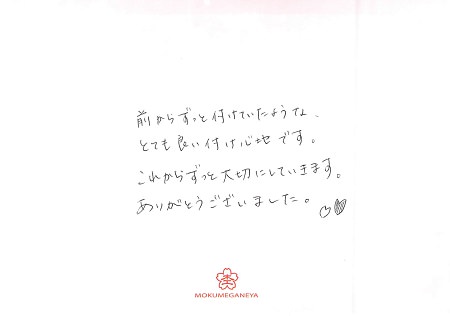 前からずっと付けていたような、
とても良い付け心地です。
これからずっと大切にしていきます。
ありがとうございました。
MOKUMEGANEYA